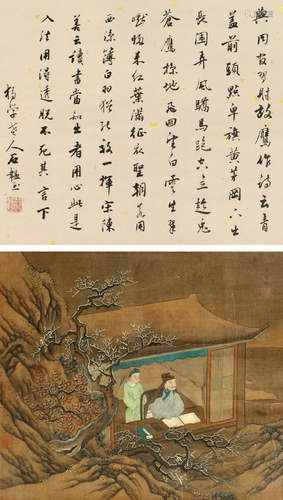 與同官習射放鷹作詩云青
蓋前頭點皂旗黃茅岡下出
長圍弄風驕馬跑空立趁兔
蒼鷹掠地飛回望白雲生翠
巘歸來紅葉滿征衣聖朝若用
西涼簿白羽猶能效一揮宋陳
善云讀書當知出者用心此是
入法用得透脫不死其言下
獨學老人石韞玉